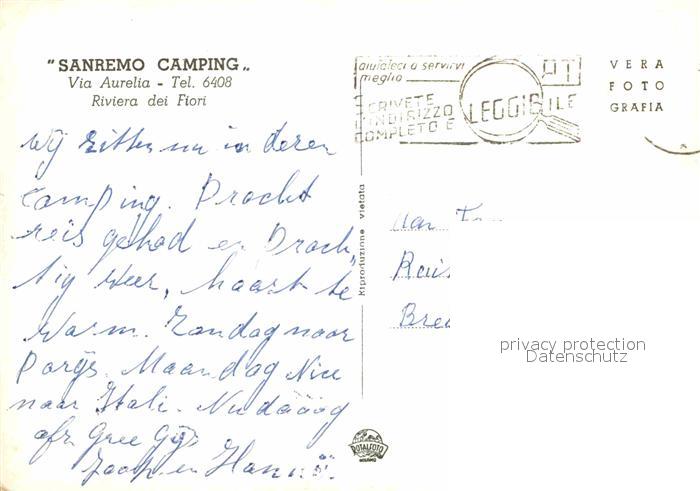 "SANREMO CAMPING„
Via Aurelia - Tel. 6408
Riviera dei Fiori
Wij zitten nu in deren
Camping. Pracht
reis gehad en Prach
tig weer, haast te
Warm. Zondag naar
Parijs. Maandag Nice
naar Itali. Nu dááág
Jaap en Hanna.
Riproduzione vietata
aiutateci a servirvi
meglio
SCRIVETE
L'INDIRIZZO
COMPLETO E LEGGIBILE
PT
VERA
FOTO
GRAFIA
aan Fam
privacy protection
Datenschutz
ROTALFOTO
MILANO